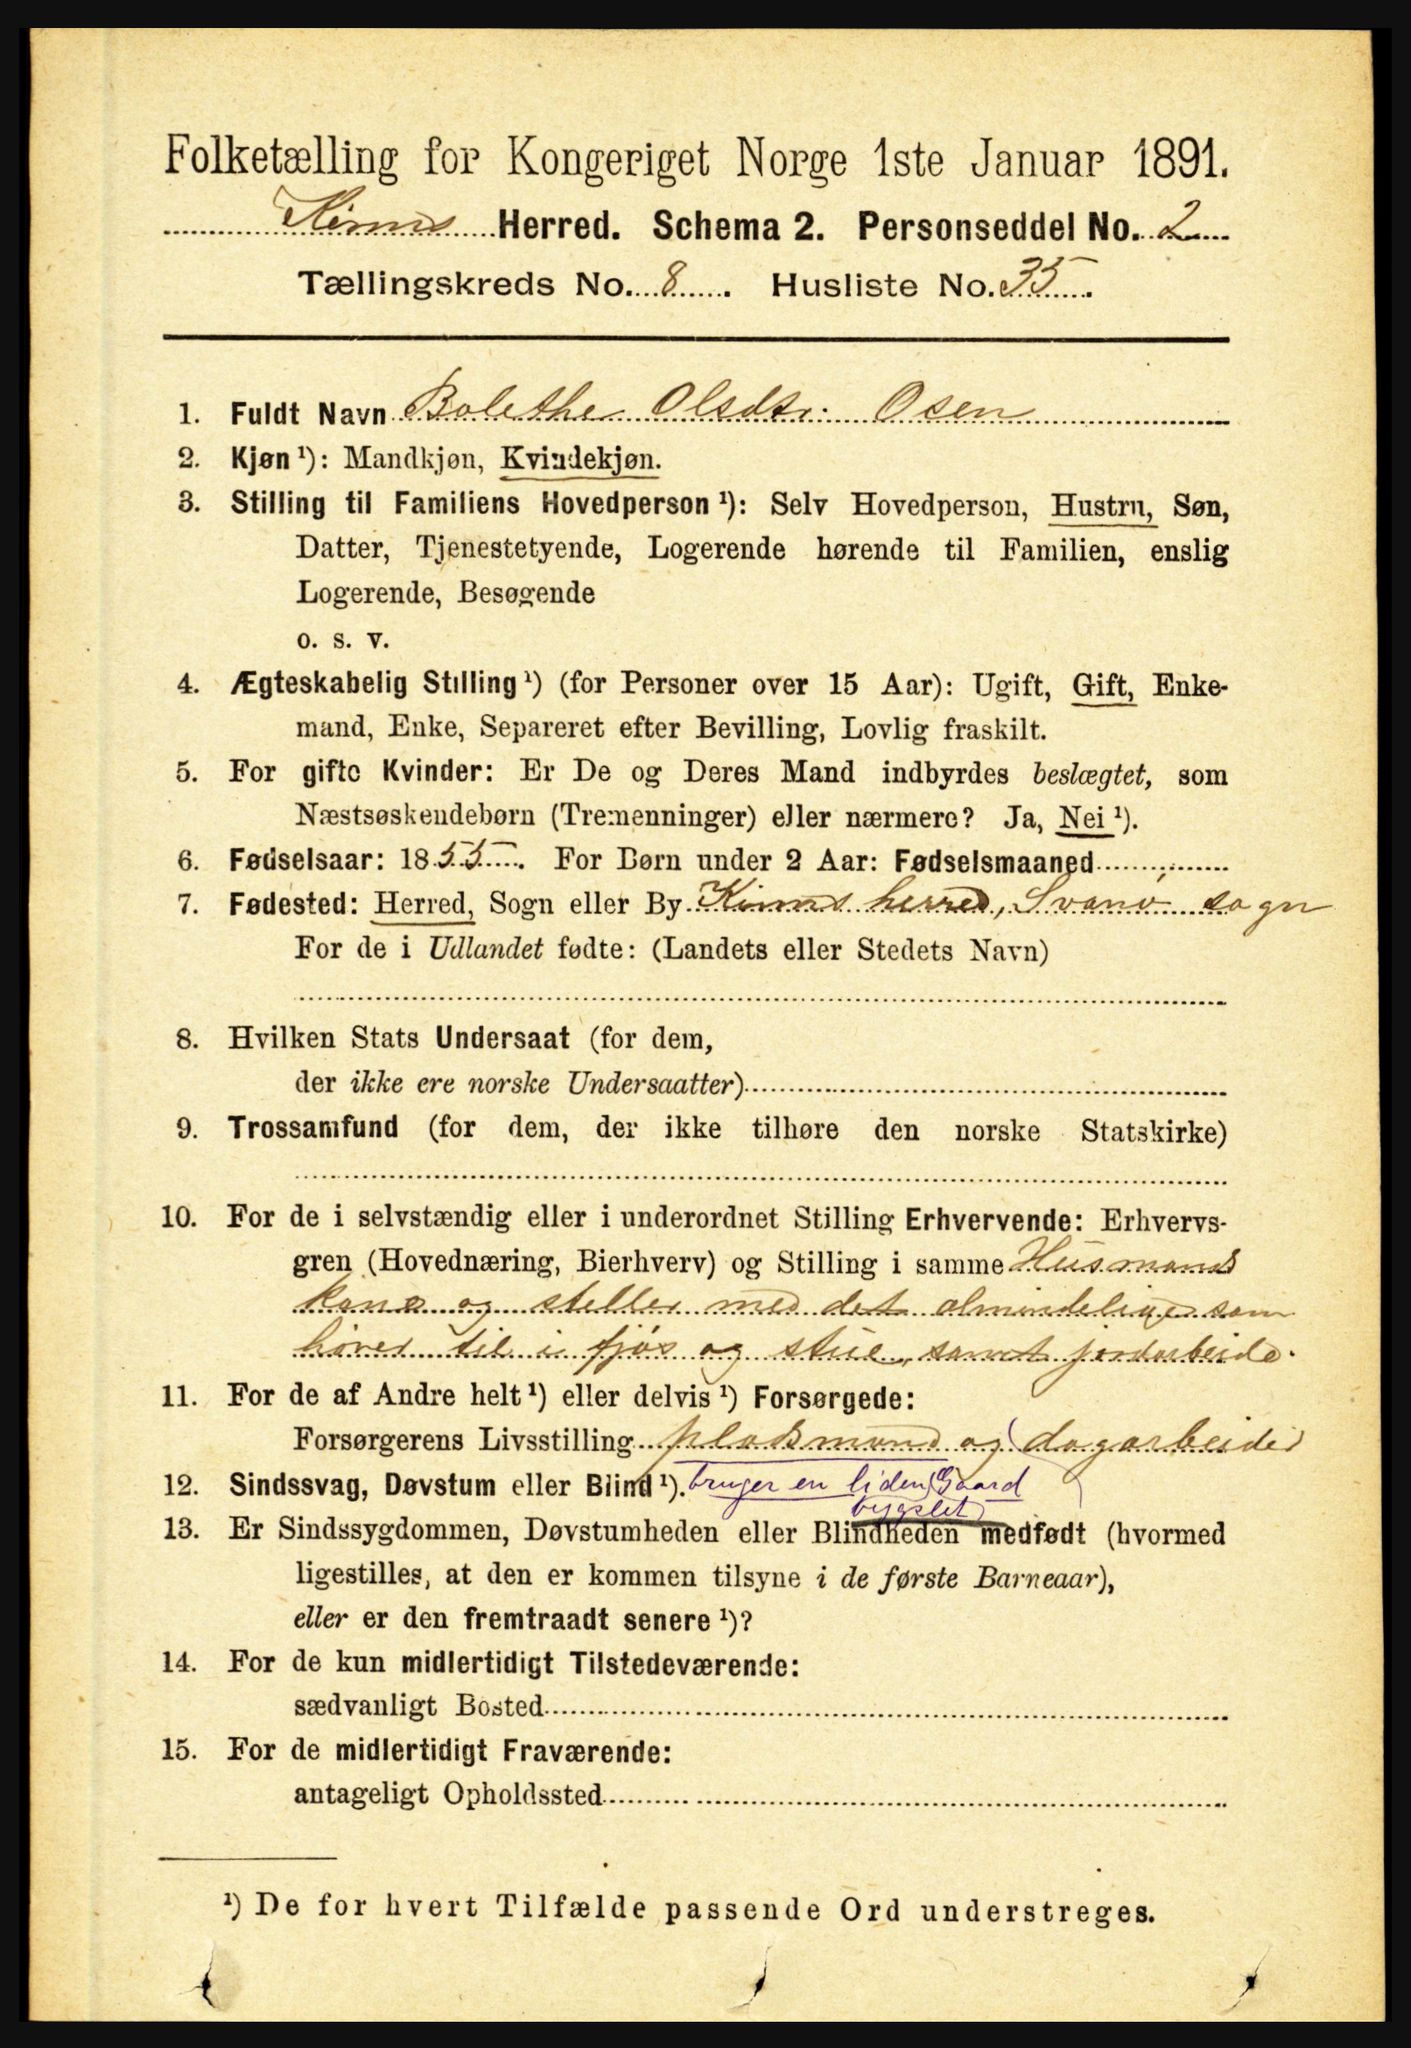 Folketælling for Kongeriget Norge 1ste Januar 1891.
Kinns Herred. Schema 2. Personseddel No. 2
Tællingskreds No. 8. Husliste No. 35.
1. Fuldt Navn Bolethe Olsdtr. Osen
2. Kjøn ¹): Mandkjøn, Kvindekjøn.
3. Stilling til Familiens Hovedperson ¹): Selv Hovedperson, Hustru, Søn,
Datter, Tjenestetyende, Logerende hørende til Familien, enslig
Logerende, Besøgende
o. s. v.
4. Ægteskabelig Stilling ¹) (for Personer over 15 Aar): Ugift, Gift, Enke-
mand, Enke, Separeret efter Bevilling, Lovlig fraskilt.
5. For gifte Kvinder: Er De og Deres Mand indbyrdes beslægtet, som
Næstsøskendebørn (Tremenninger) eller nærmere? Ja, Nei ¹).
6. Fødselsaar: 1855. For Børn under 2 Aar: Fødselsmaaned
7. Fødested: Herred, Sogn eller By Kinns herred, Svanø sogn
For de i Udlandet fødte: (Landets eller Stedets Navn)
8. Hvilken Stats Undersaat (for dem,
der ikke ere norske Undersaatter)
9. Trossamfund (for dem, der ikke tilhøre den norske Statskirke)
10. For de i selvstændig eller i underordnet Stilling Erhvervende: Erhvervs-
gren (Hovednæring, Bierhverv) og Stilling i samme Husmands
kone og steller med det almindelige som
hører til i fjøs og stue, samt jordarbeide.
11. For de af Andre helt ¹) eller delvis ¹) Forsørgede:
Forsørgerens Livsstilling pladsmand og dagarbeider
12. Sindssvag, Døvstum eller Blind ¹). bruger en liden Gaard
bygslet
13. Er Sindssygdommen, Døvstumheden eller Blindheden medfødt (hvormed
ligestilles, at den er kommen tilsyne i de første Barneaar),
eller er den fremtraadt senere ¹)?
14. For de kun midlertidigt Tilstedeværende:
sædvanligt Bosted
15. For de midlertidigt Fraværende:
antageligt Opholdssted
¹) De for hvert Tilfælde passende Ord understreges.